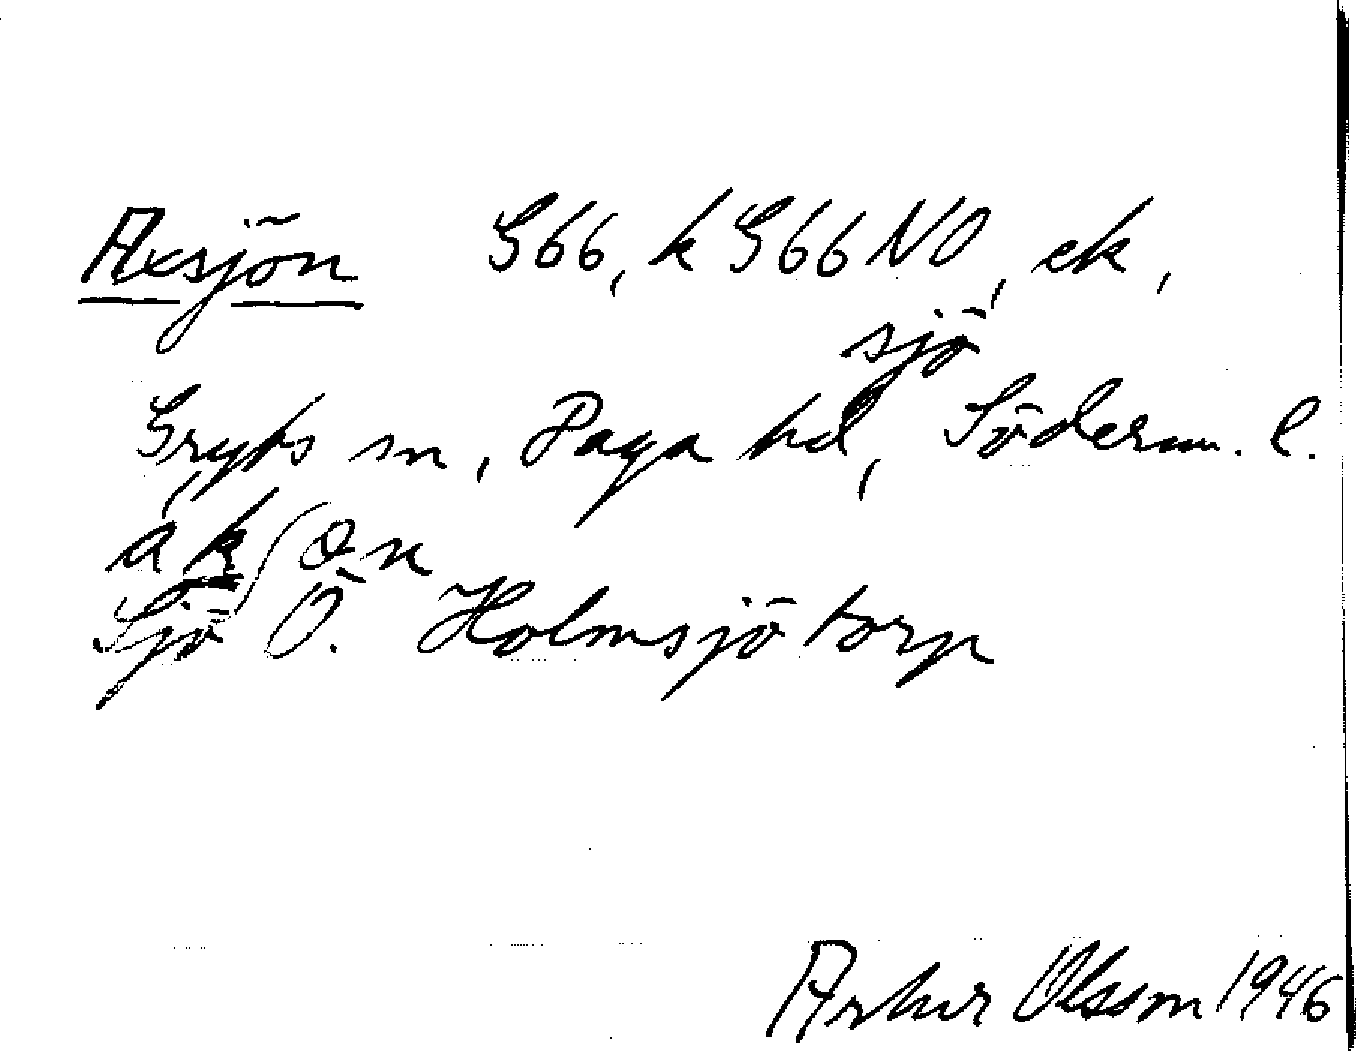 Axsjön G66, k G66 NO, ek,
sjö
Gryts sn, Daga hd, Söderm. l.
àkʃön
Sjö Ö. Holmsjötorp
Arthur Olsson 1946